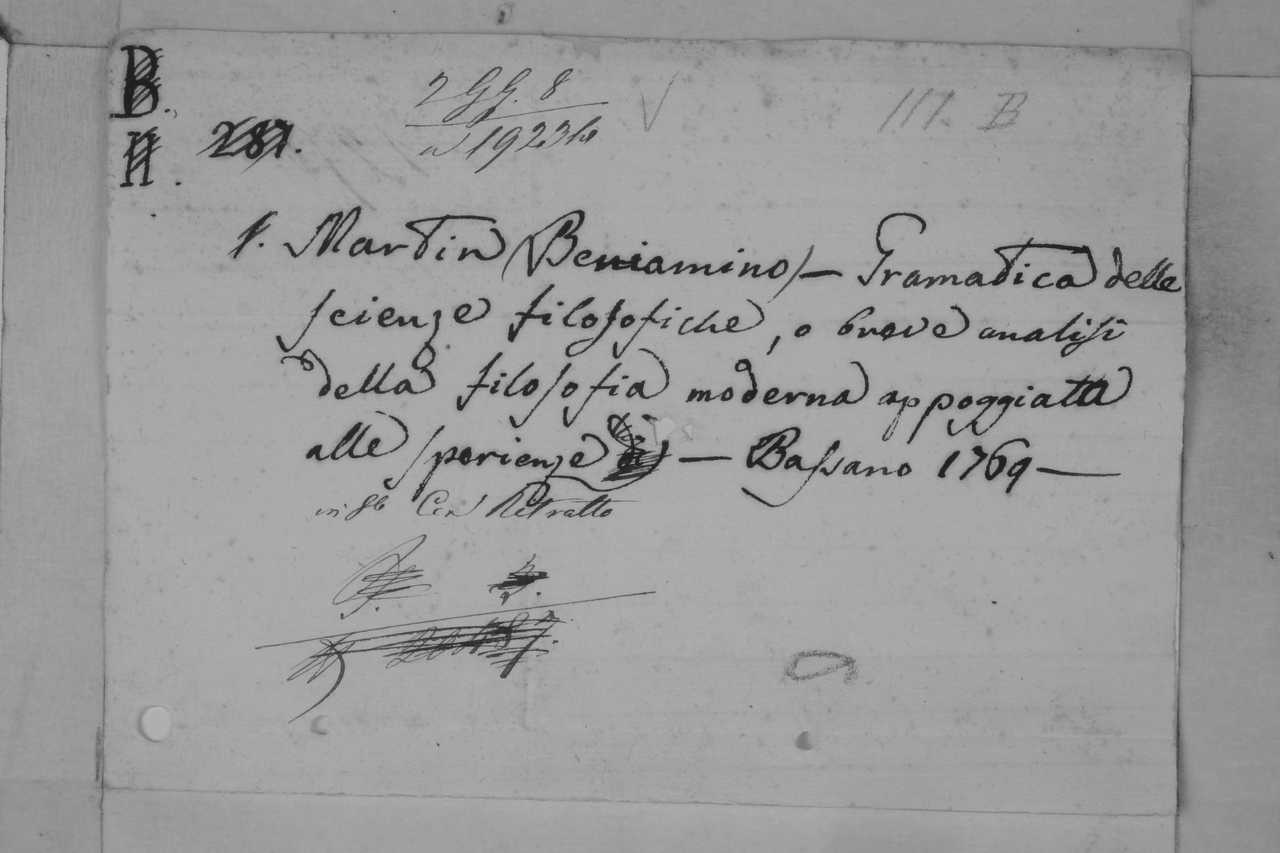 B.
2 GG. 8
111. B
H. 287.
1923
1. Martin (Beniamino) — Gramatica delle
scienze filosofiche, o breve analisi
della filosofia moderna appoggiata
alle sperienze — Bassano 1769 —
in 8o Con Ritratto